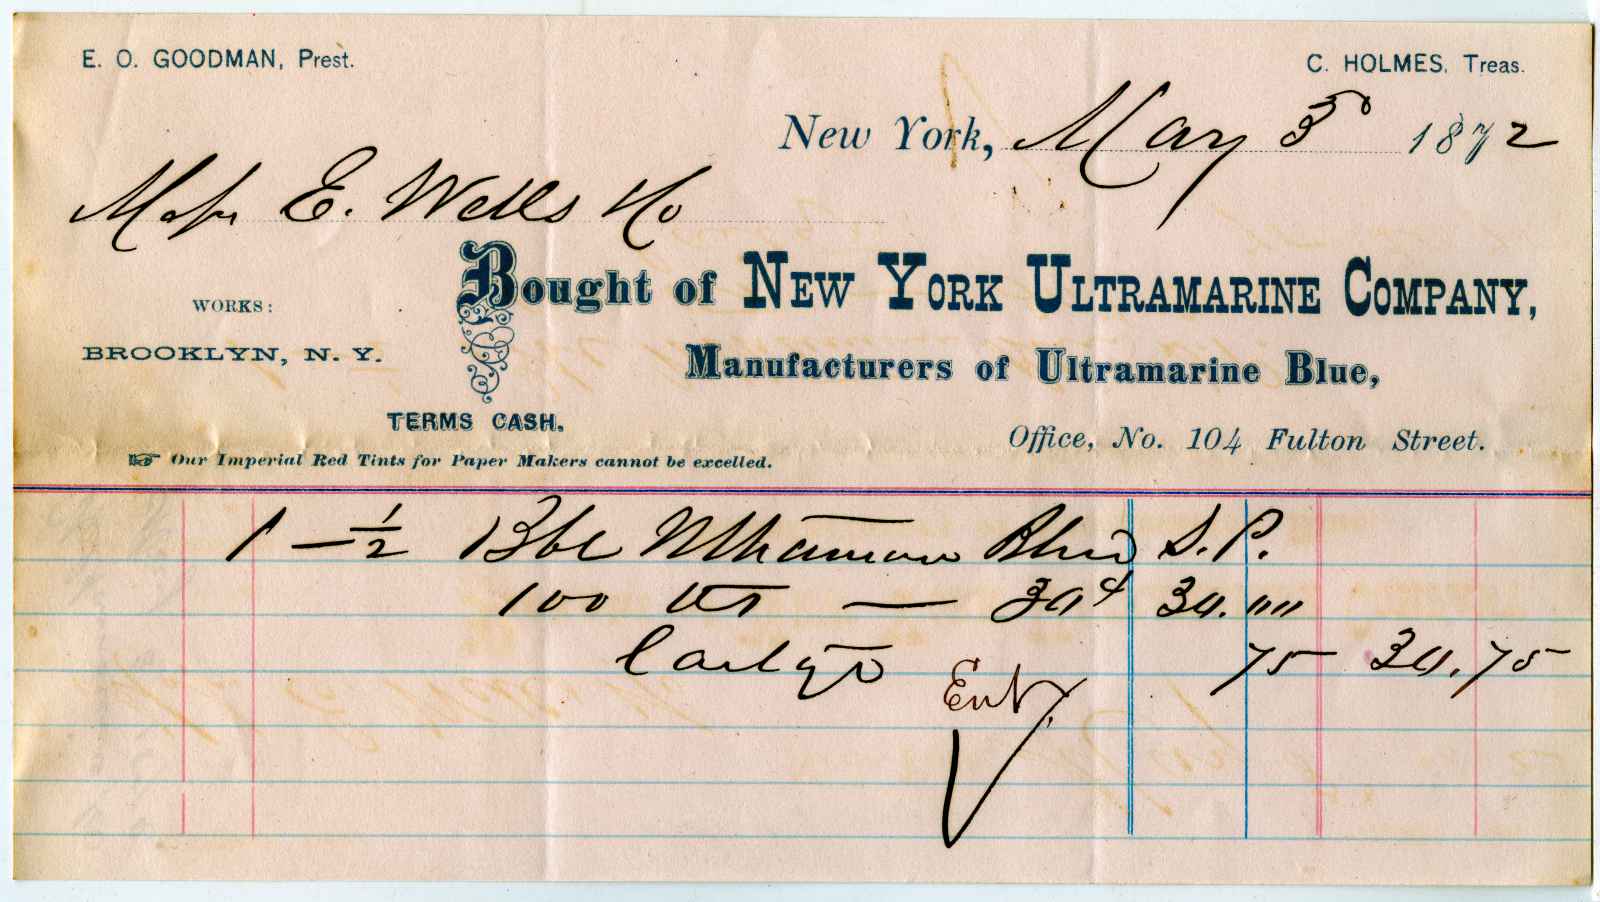 E. O. GOODMAN, Prest.
C. HOLMES, Treas.
New York, May 3 1872
E. Wells
Bought of NEW YORK ULTRAMARINE COMPANY,
WORKS:
BROOKLYN, N. Y.
Manufacturers of Ultramarine Blue,
TERMS CASH.
Office, No. 104 Fulton Street.
☞ Our Imperial Red Tints for Paper Makers cannot be excelled.
1 — 1/2 Bbl Ultramarine Blue S. P.
100 lbs — 30¢ 30.00
Cartge 75 30.75
Ent